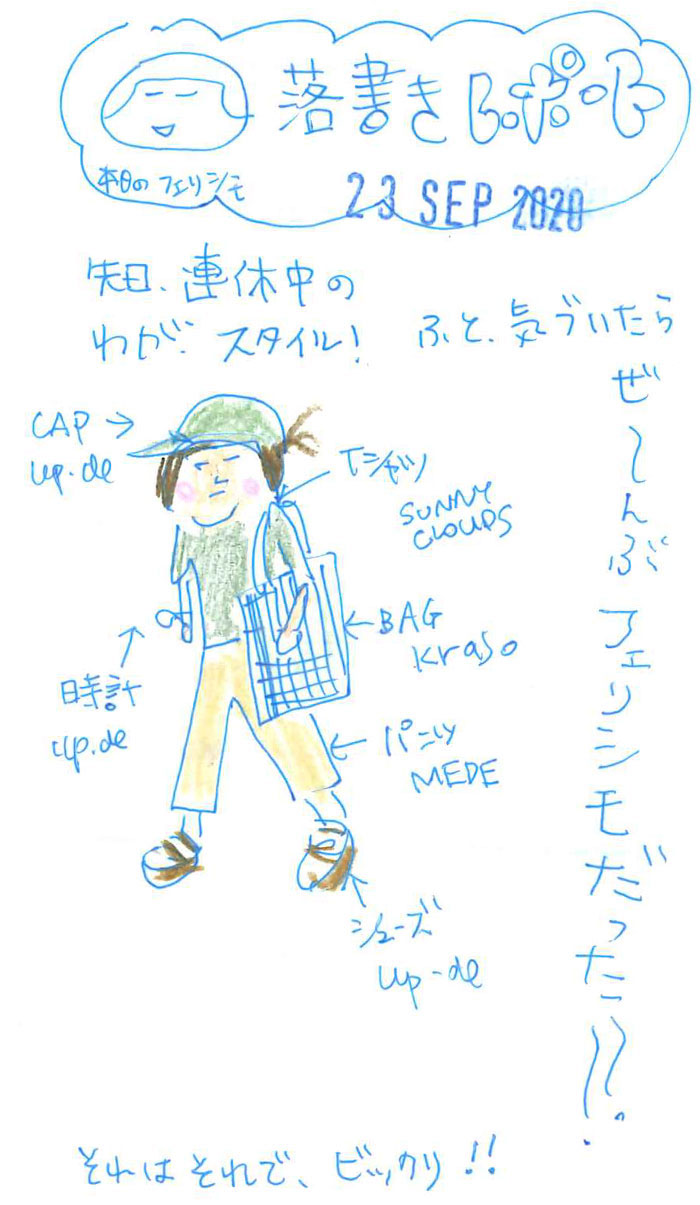 落書きレポート
本日のフェリシモ
23 SEP 2020
先日、連休中の
わが、スタイル!
ふと、気づいたら
ぜ〜んぶフェリシモだった!?
CAP →
up.de
Tシャツ
SUNNY
CLOUDS
←BAG
kraso
時計
up.de
← パンツ
MEDE
シューズ
up-de
それはそれで、ビックリ!!